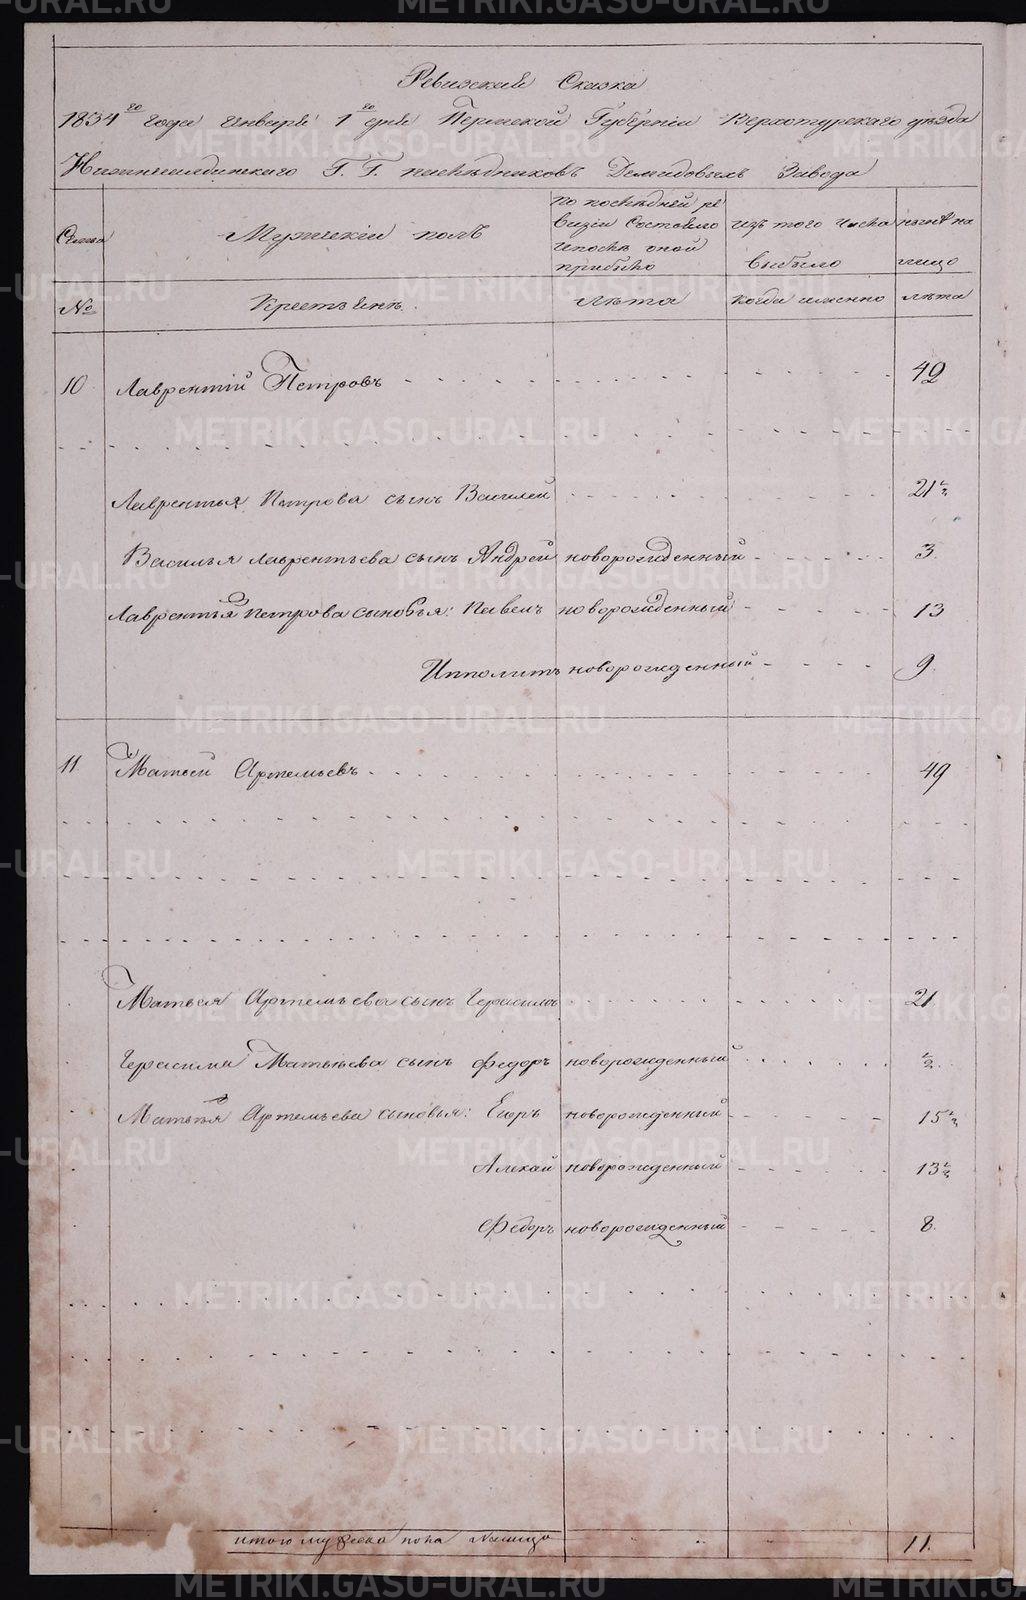 Ревизская Сказка
1834го года Генваря 1го дня Пермской Губернiи Верхотурскаго уѣзда
Нижнесалдинскаго Г. Г. наслѣдниковъ Демидовыхъ Завода
Семьи Мужескiй полъ По послѣдней ре визiи Состояло и послѣ оной прибыло Изъ того числа выбыло Нынѣ на лицо
№ Крестьянъ. Лѣта Когда именно Лѣта
10 Лаврентiй Петровъ 49
Лаврентья Петрова сынъ Василей 21½
Василья Лаврентьева сынъ Андрей новорожденный 3.
Лаврентья Петрова сыновья: Павелъ новорожденный 13
Ипполитъ новорожденный 9.
11. Матвей Артемьевъ 49
Матвея Артемьева сынъ Герасимъ 21
Герасима Матвеева сынъ Федоръ новорожденный ½.
Матвея Артемьева сыновья: Егоръ новорожденный 15½
Алексей новорожденный 13½
Федоръ новорожденный 8.
итого мужеска пола налицо 11.
METRIKI.GASO-URAL.RU